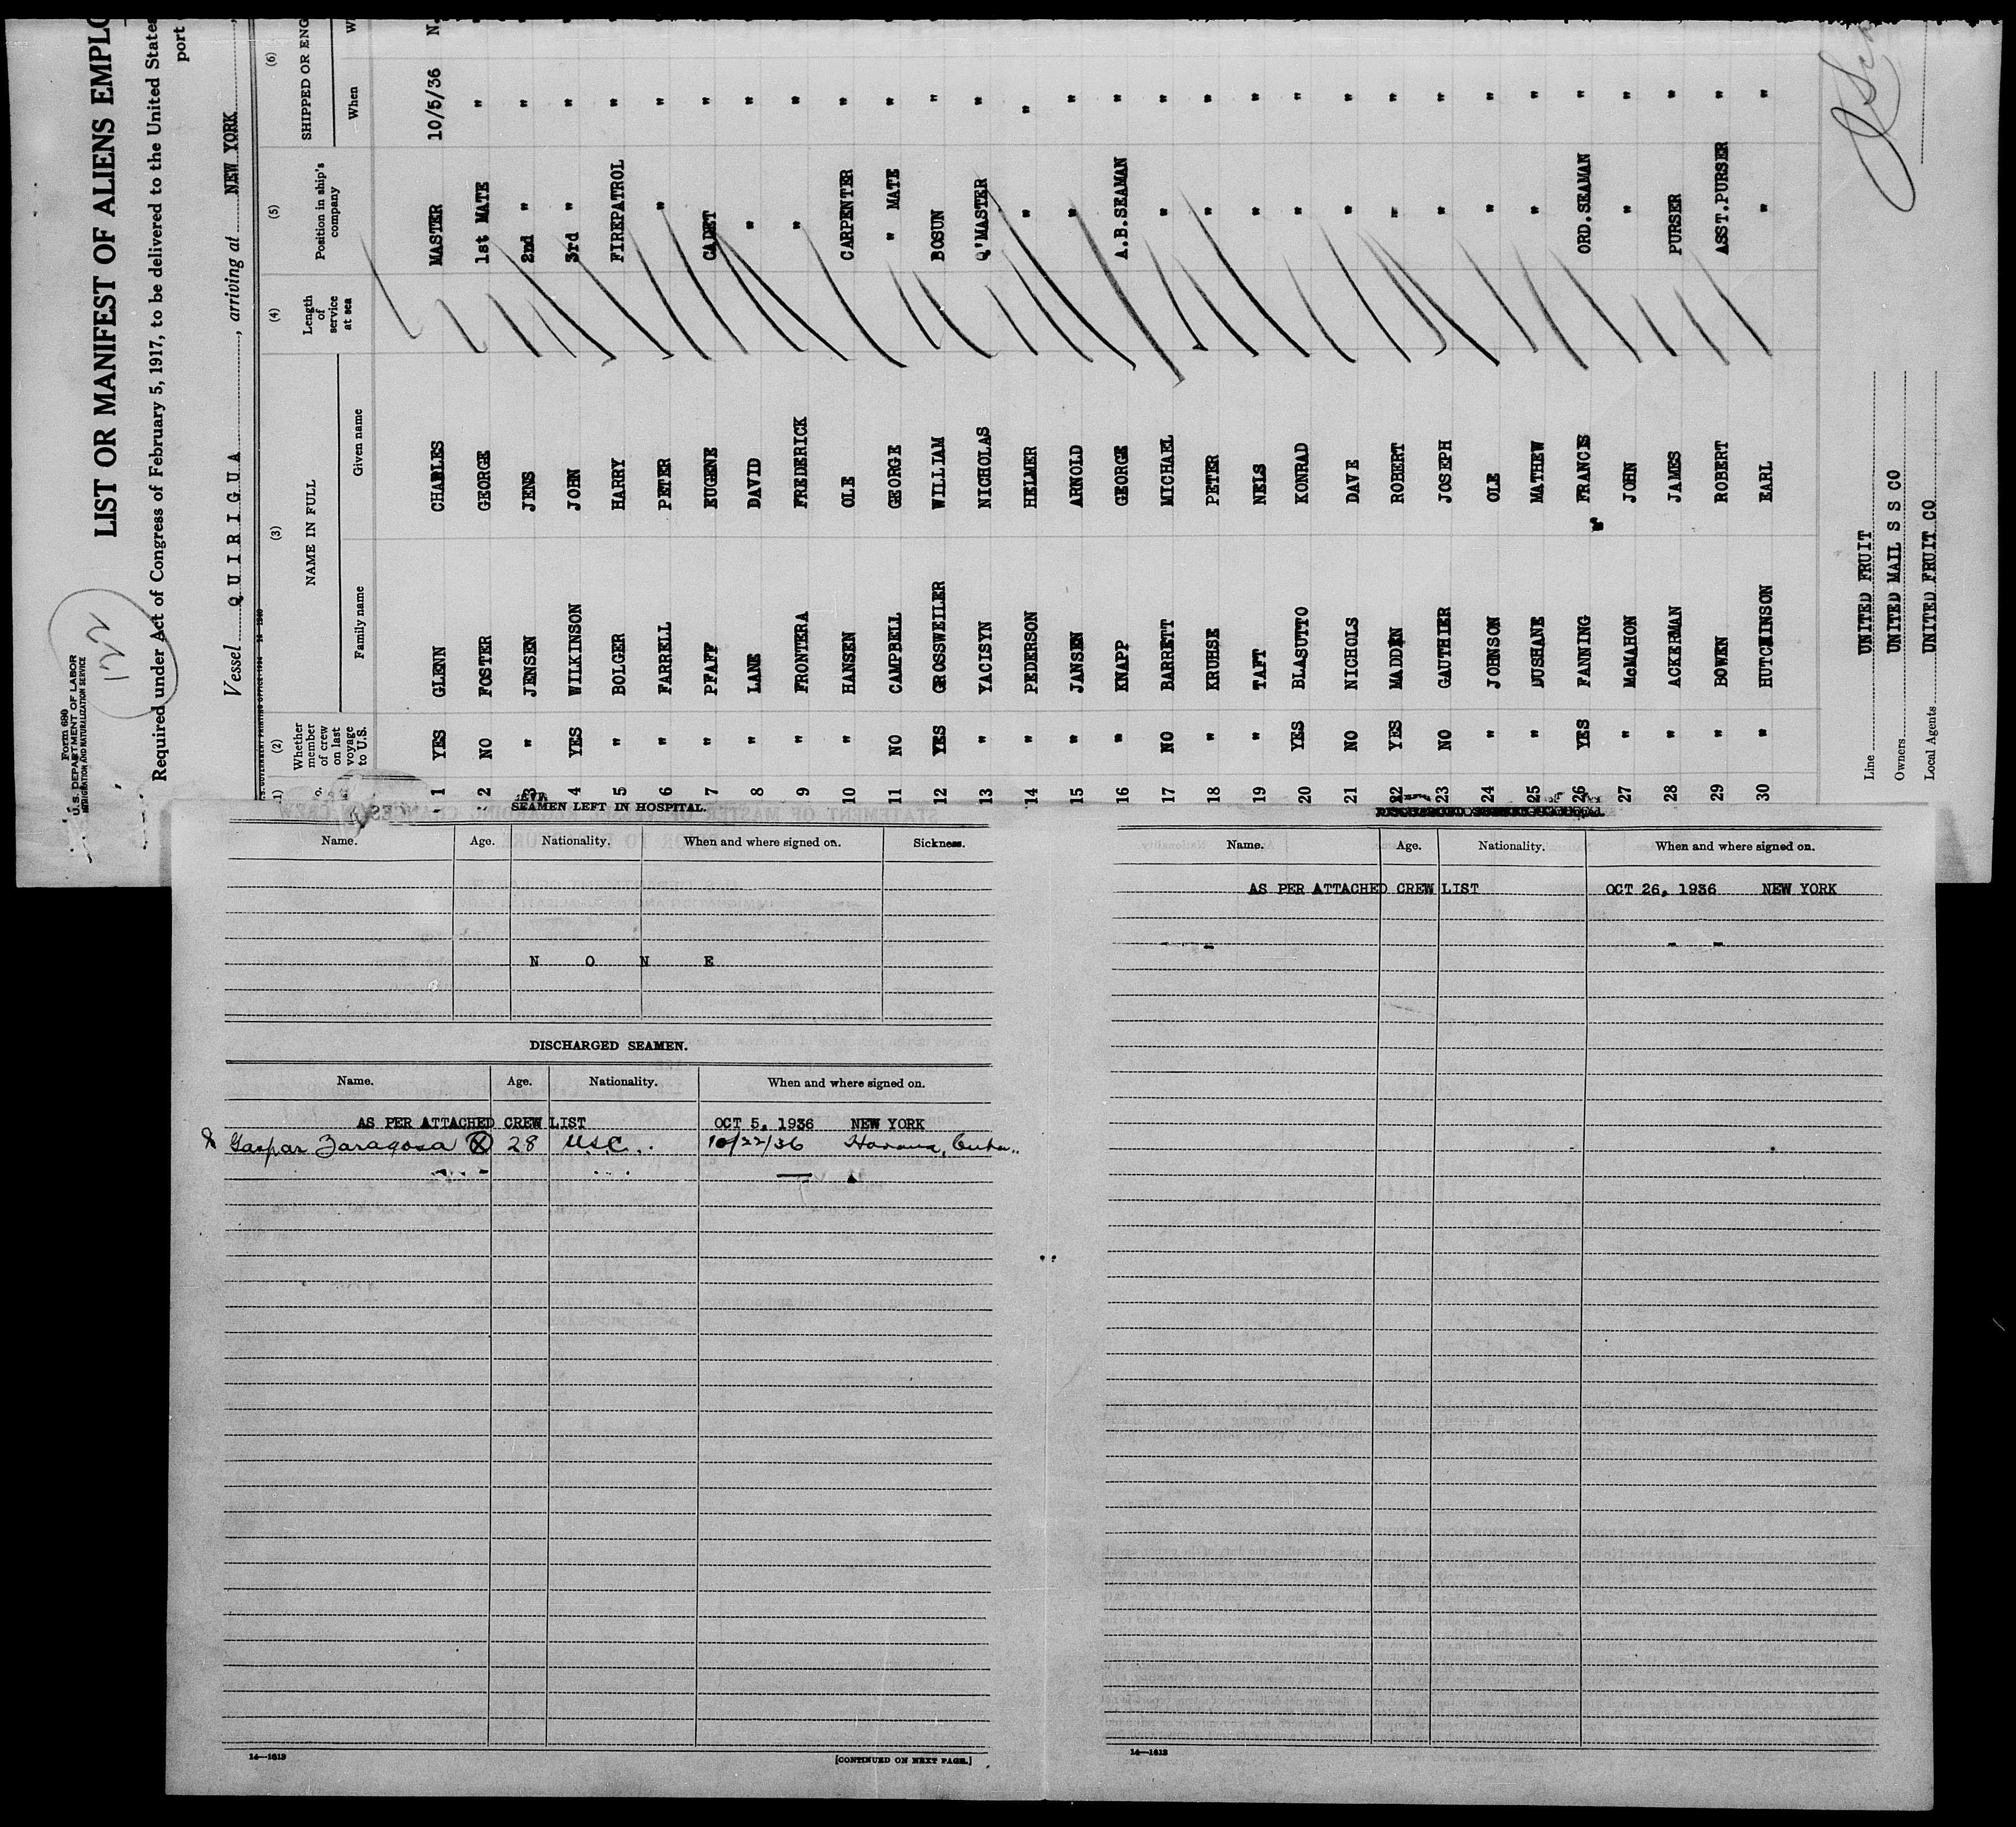 Form 680
U.S. DEPARTMENT OF LABOR
IMMIGRATION AND NATURALIZATION SERVICE
122
LIST OR MANIFEST OF ALIENS EMPLO
Required under Act of Congress of February 5, 1917, to be delivered to the United State
port
Vessel QUIRIGUA, arriving at NEW YORK
(2) (3) (4) (5) (6)
Whether member of crew on last voyage to U.S. NAME IN FULL Length of service at sea Position in ship's company SHIPPED OR ENG
Family name Given name When W
1 YES GLENN CHARLES MASTER 10/5/36 N.
2 NO FOSTER GEORGE 1st MATE "
3 " JENSEN JENS 2nd " "
4 YES WILKINSON JOHN 3rd " "
5 " BOLGER HARRY FIREPATROL "
6 " FARRELL PETER " "
7 " PFAFF EUGENE CADET "
8 " LANE DAVID " "
9 " FRONTERA FREDERICK " "
10 " HANSEN OLE CARPENTER "
11 NO CAMPBELL GEORGE " MATE "
12 YES GROSSWEILER WILLIAM BOSUN "
13 " YACISYN NICHOLAS Q'MASTER "
14 " PEDERSON HELMER " "
15 " JANSEN ARNOLD " "
16 " KNAPP GEORGE A.B.SEAMAN "
17 NO BARRETT MICHAEL " "
18 " KRUHSE PETER " "
19 " TAFT NELS " "
20 YES BLASUTTO KONRAD " "
21 NO NICHOLS DAVE " "
22 YES MADDEN ROBERT " "
23 NO GAUTHIER JOSEPH " "
24 " JOHNSON OLE " "
25 " DUSHANE MATHEW " "
26 YES FANNING FRANCIS ORD.SEAMAN "
27 " McMAHON JOHN " "
28 " ACKERMAN JAMES PURSER "
29 " BOWEN ROBERT ASST.PURSER "
30 " HUTCHINSON EARL " "
Line UNITED FRUIT
Owners UNITED MAIL S S CO
Local Agents UNITED FRUIT CO
SEAMEN LEFT IN HOSPITAL.
Name. Age. Nationality. When and where signed on. Sickness.
N O N E
DISCHARGED SEAMEN.
Name. Age. Nationality. When and where signed on.
AS PER ATTACHED CREW LIST OCT 5, 1936 NEW YORK
Gaspar Zaragosa X 28 U.S.C. 10/22/36 Havana, Cuba
14—1613 [CONTINUED ON NEXT PAGE.]
Name. Age. Nationality. When and where signed on.
AS PER ATTACHED CREW LIST OCT 26, 1936 NEW YORK
14—1613